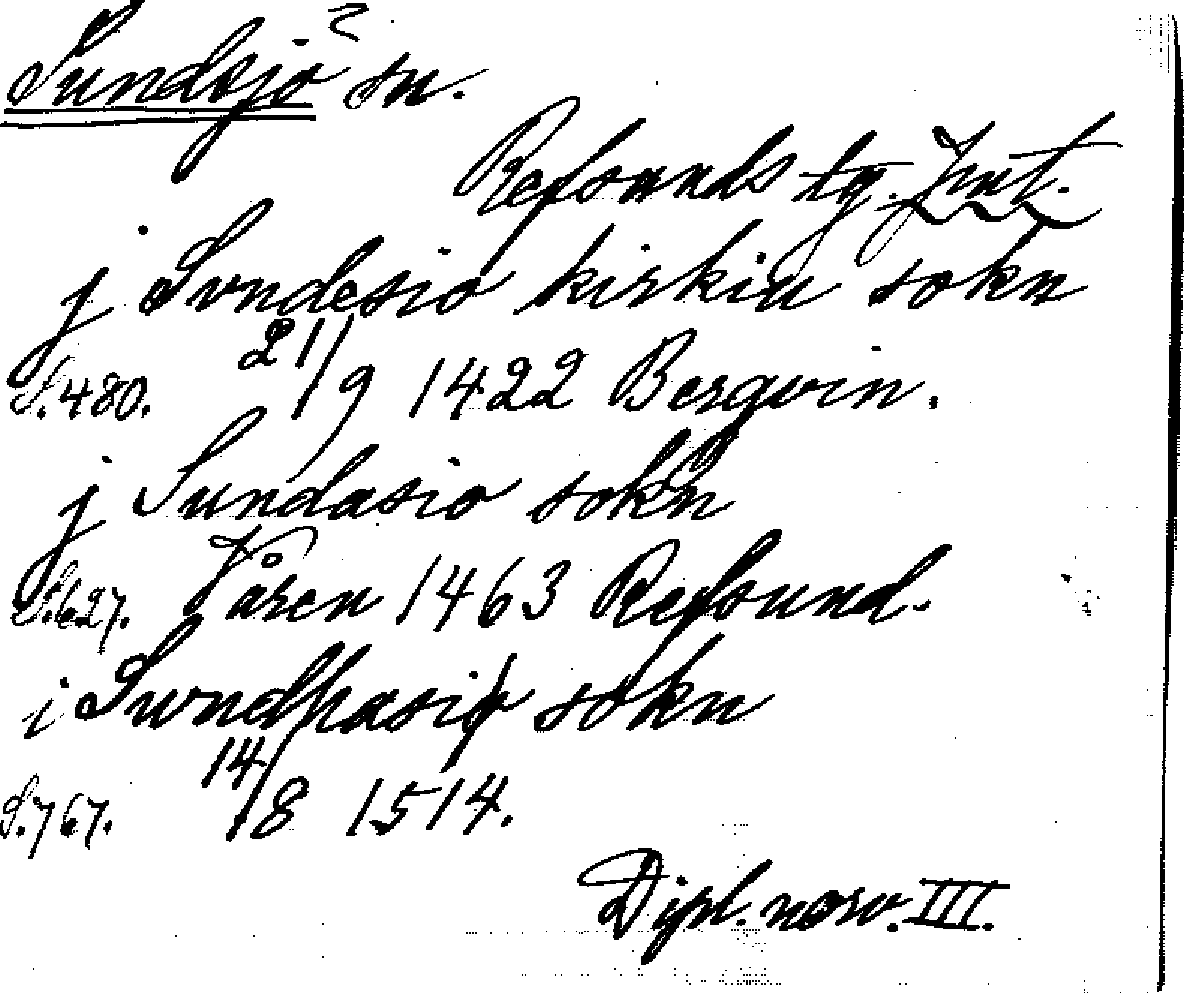 Sundsjö sn.
Refsunds tg. Jmt.
j Svndesio kirkiu sokn
S. 480. 21/9 1422 Bergvin.
j Sundasio sokn
S. 627. Våren 1463 Refsund.
i Swndhasiø sokn
S. 767. 14/8 1514.
Dipl. norv. III.